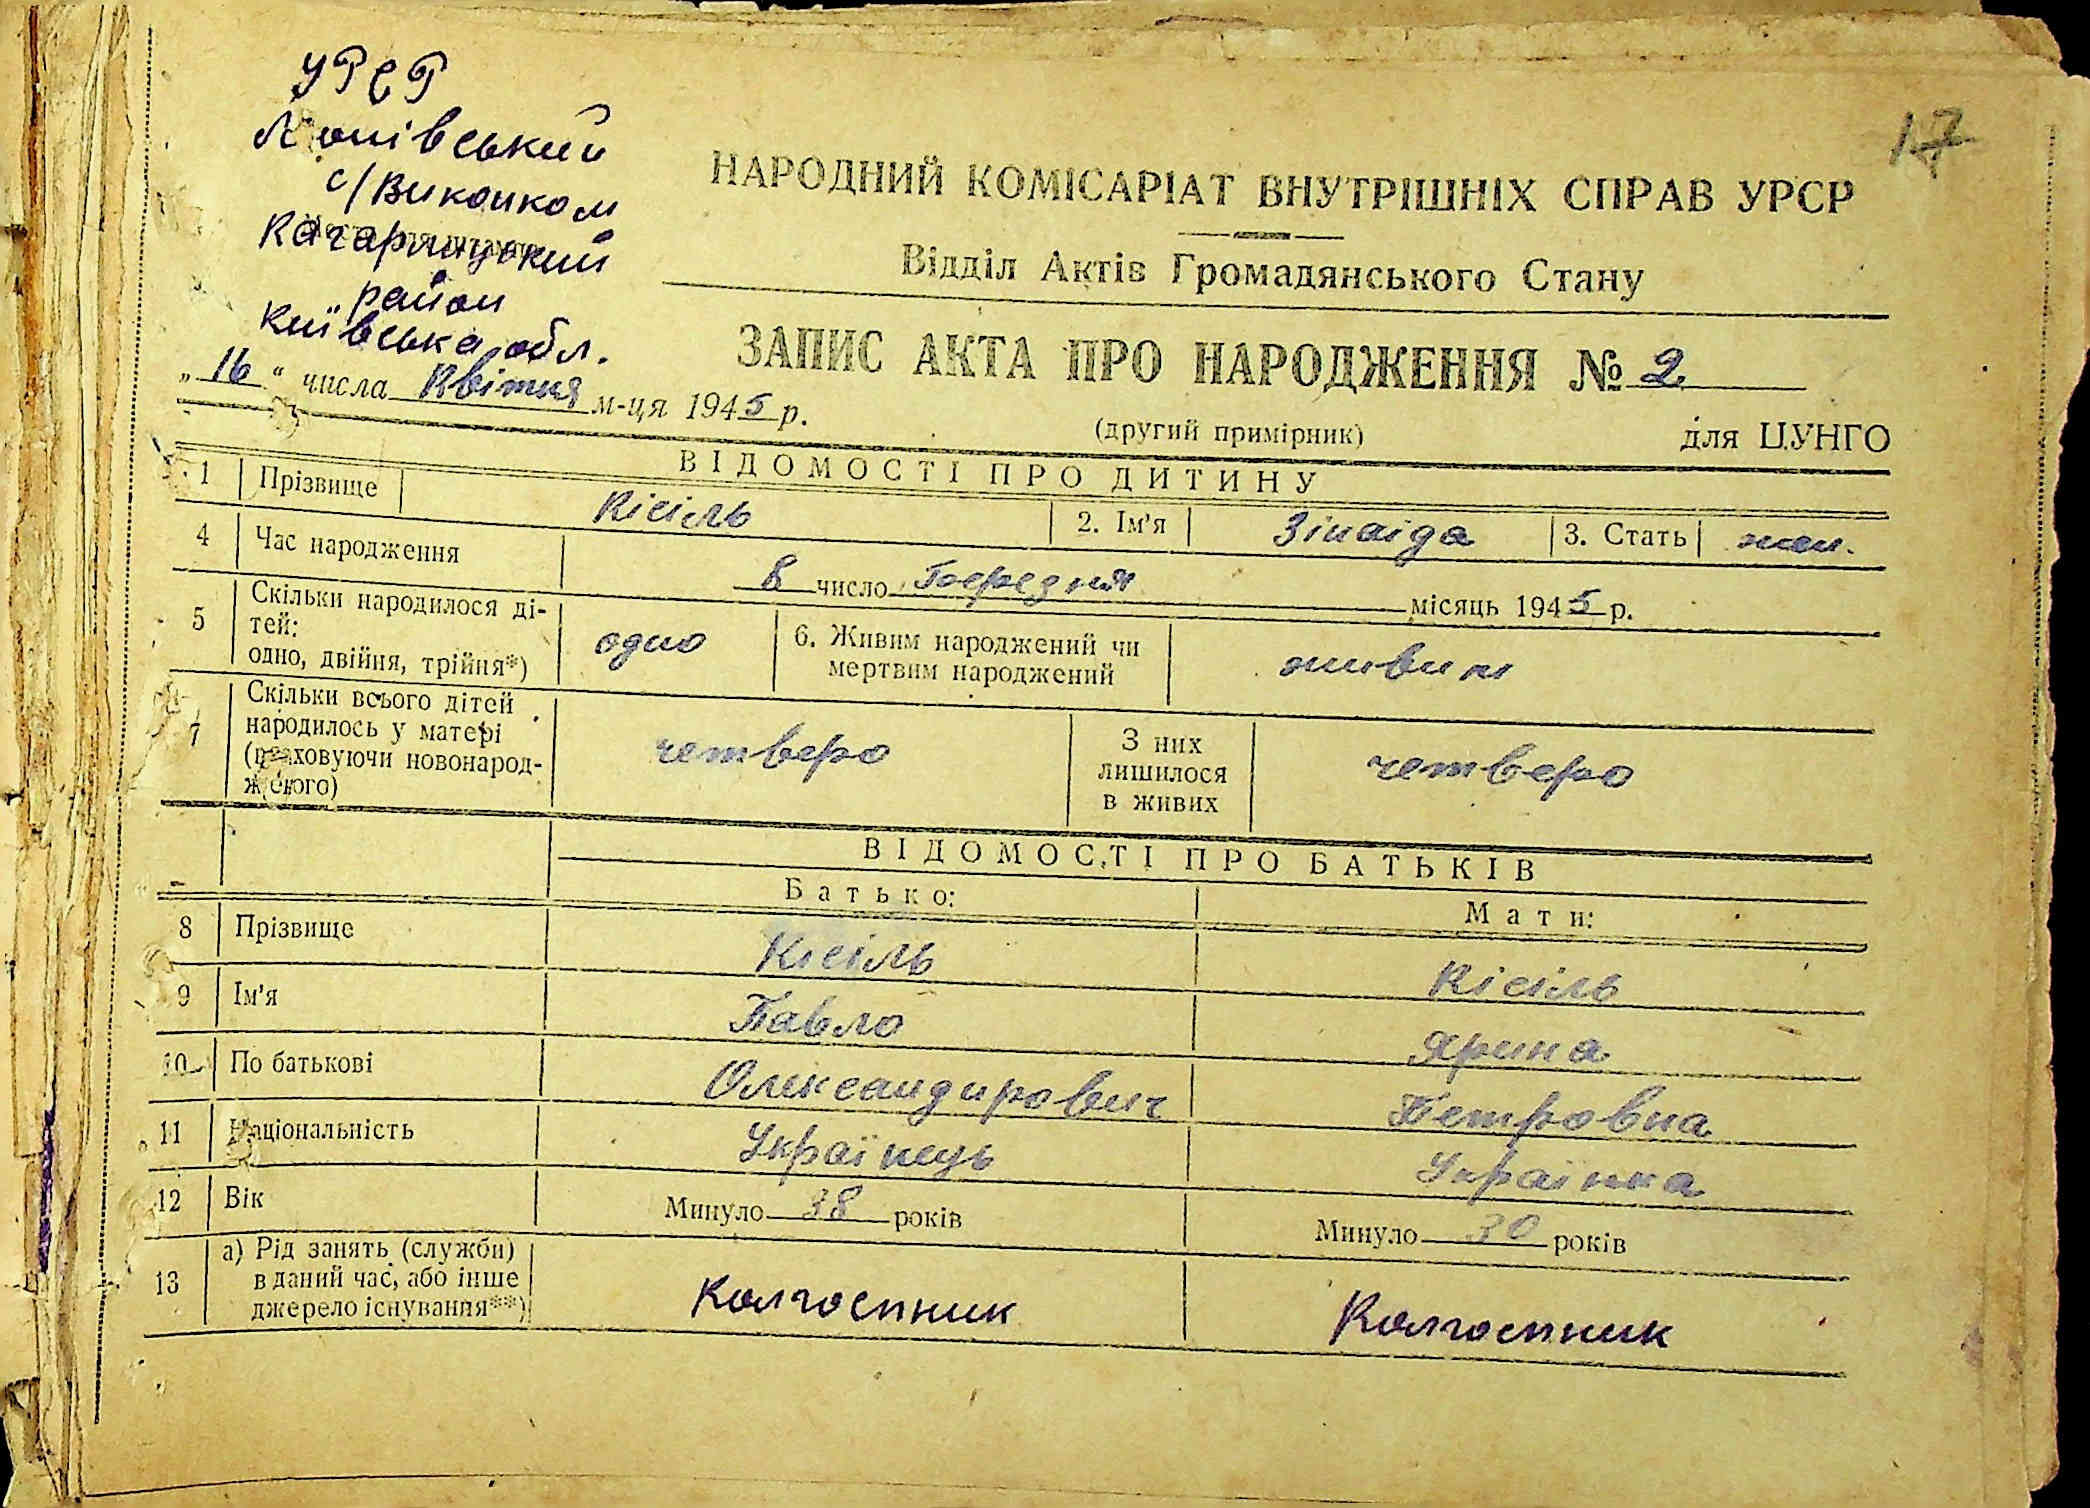 17
УРСР
с/Виконком
Кагарлицький
район
Київська обл.
НАРОДНИЙ КОМІСАРІАТ ВНУТРІШНІХ СПРАВ УРСР
Відділ Актів Громадянського Стану
ЗАПИС АКТА ПРО НАРОДЖЕННЯ № 2
„16“ числа Квітня м-ця 1945 р.
(другий примірник) для ЦУНГО
ВІДОМОСТІ ПРО ДИТИНУ
1 Прізвище Кісіль 2. Ім'я Зінаіда 3. Стать жен.
4 Час народження 8 число місяць 1945 р.
5 Скільки народилося ді-
тей:
одно, двійня, трійня*) одно 6. Живим народжений чи
мертвим народжений живим
7 Скільки всього дітей
народилось у матері
(враховуючи новонарод-
женого) четверо З них
лишилося
в живих четверо
ВІДОМОСТІ ПРО БАТЬКІВ
Батько: Мати:
8 Прізвище Кісіль Кісіль
9 Ім'я Павло Ярина
10 По батькові Олександирович Петровна
11 Національність Українець Українка
12 Вік Минуло 38 років Минуло 30 років
13 а) Рід занять (служби)
в даний час, або інше
джерело існування**) Колгоспник Колгоспник